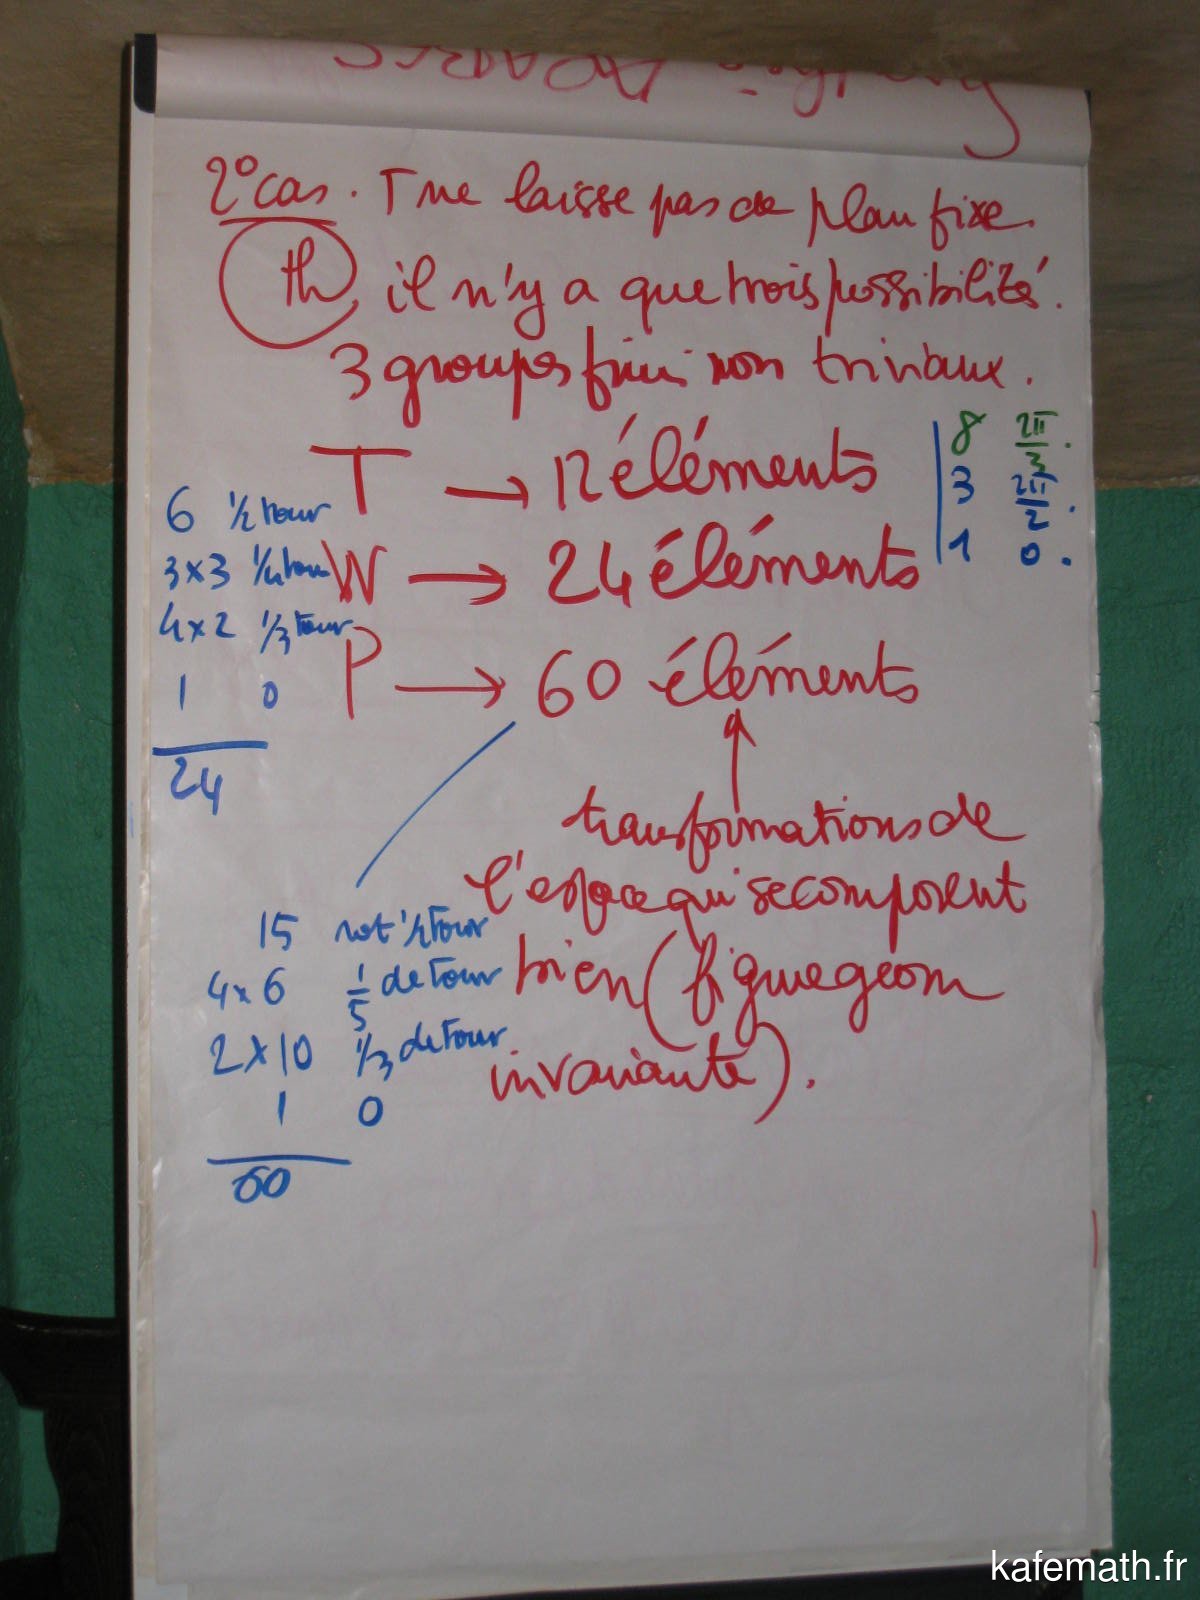 2° cas. T ne laisse pas de plan fixe.
th il n'y a que trois possibilités.
3 groupes finis non triviaux.
T → 12 éléments
8 2π/3.
3 2π/2.
1 0.
6 1/2 tour
W → 24 éléments
3×3 1/4 tour
4×2 1/3 tour
1 0
24
P → 60 éléments
transformations de
l'espace qui se composent
bien (figure géom
invariante).
15 rot 1/2 tour
4×6 1/5 de tour
2×10 1/3 de tour
1 0
60
kafemath.fr